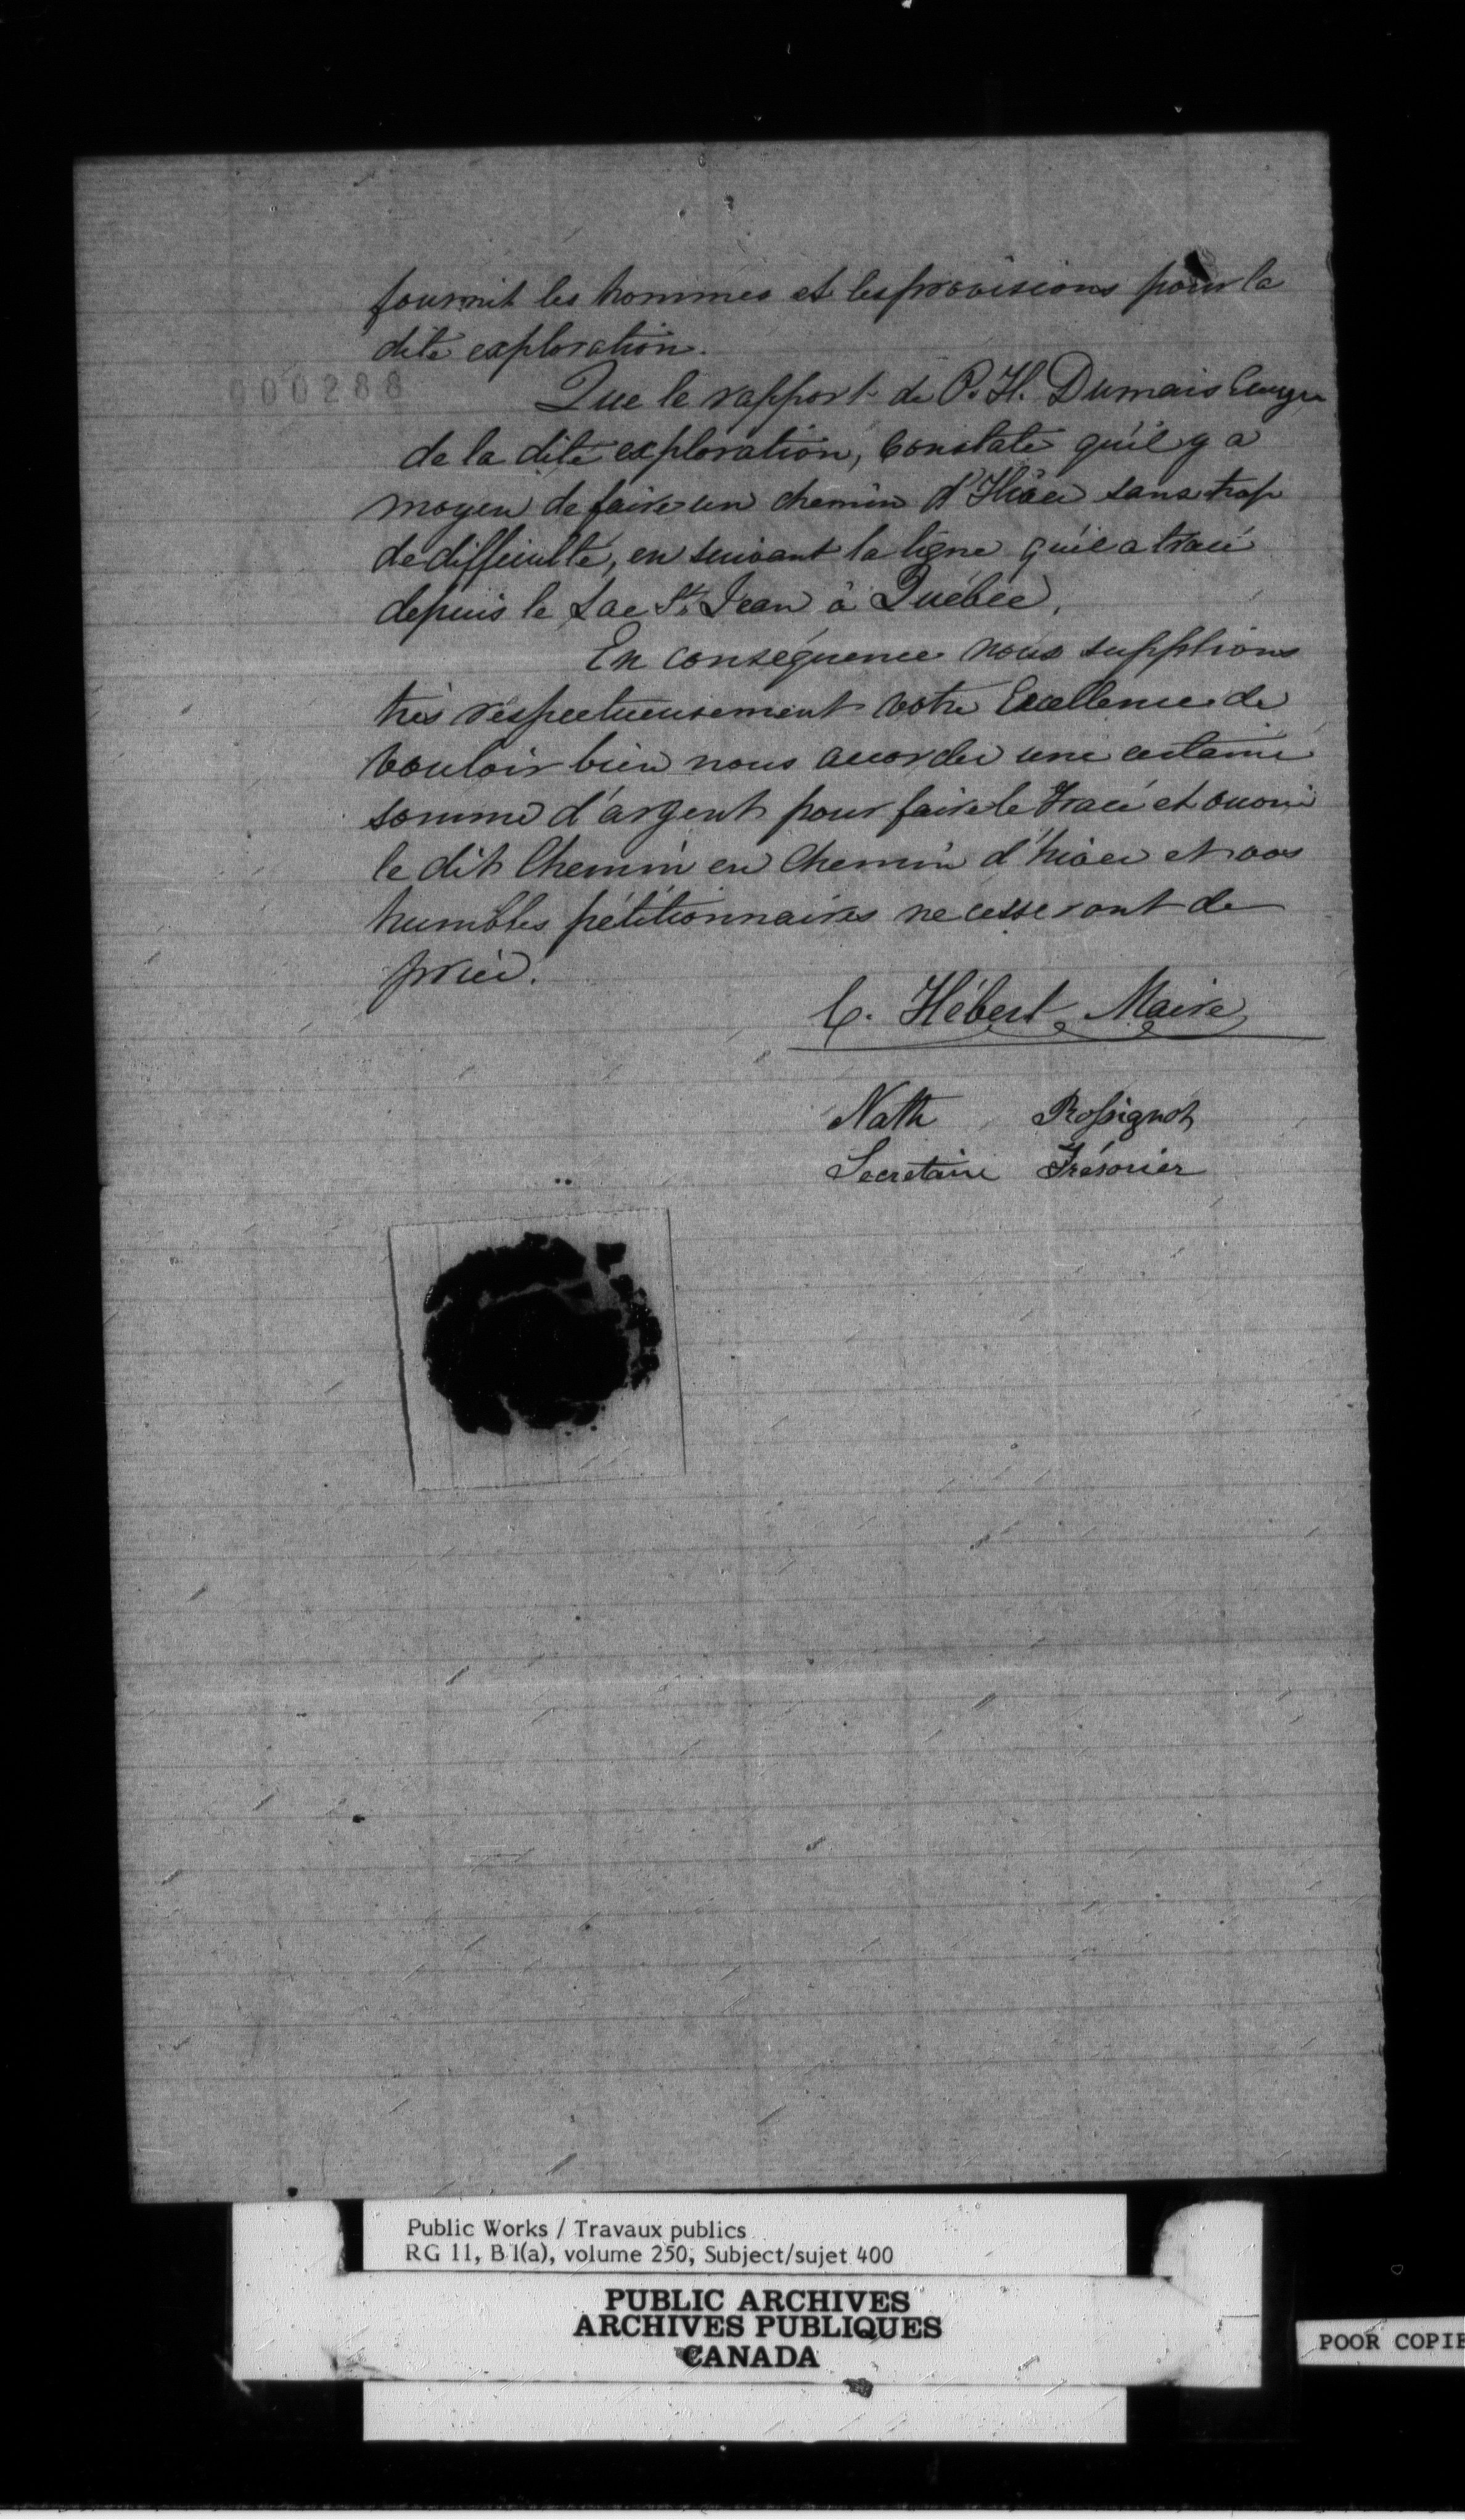 fournit les hommes et les provisions pour la
dite exploration.
000288
Que le rapport de P. H. Dumais Ecuyer
de la dite exploration, constate qu'il y a
moyen de faire un chemin d'Hiver sans trop
de difficulté, en suivant la ligne qu'il a tracé
depuis le Lac St. Jean à Québec.
En conséquence nous supplions
très respectueusement votre Excellence de
vouloir bien nous accorder une certaine
somme d'argent pour faire le Tracé et ouvrir
le dit Chemin en Chemin d'hiver et vos
humbles pétitionnaires ne cesseront de
prier.
C. Hébert Maire
Nath Rossignol
Secretaire Trésorier
Public Works / Travaux publics
RG 11, B 1(a), volume 250, Subject/sujet 400
PUBLIC ARCHIVES
ARCHIVES PUBLIQUES
CANADA
POOR COPIE